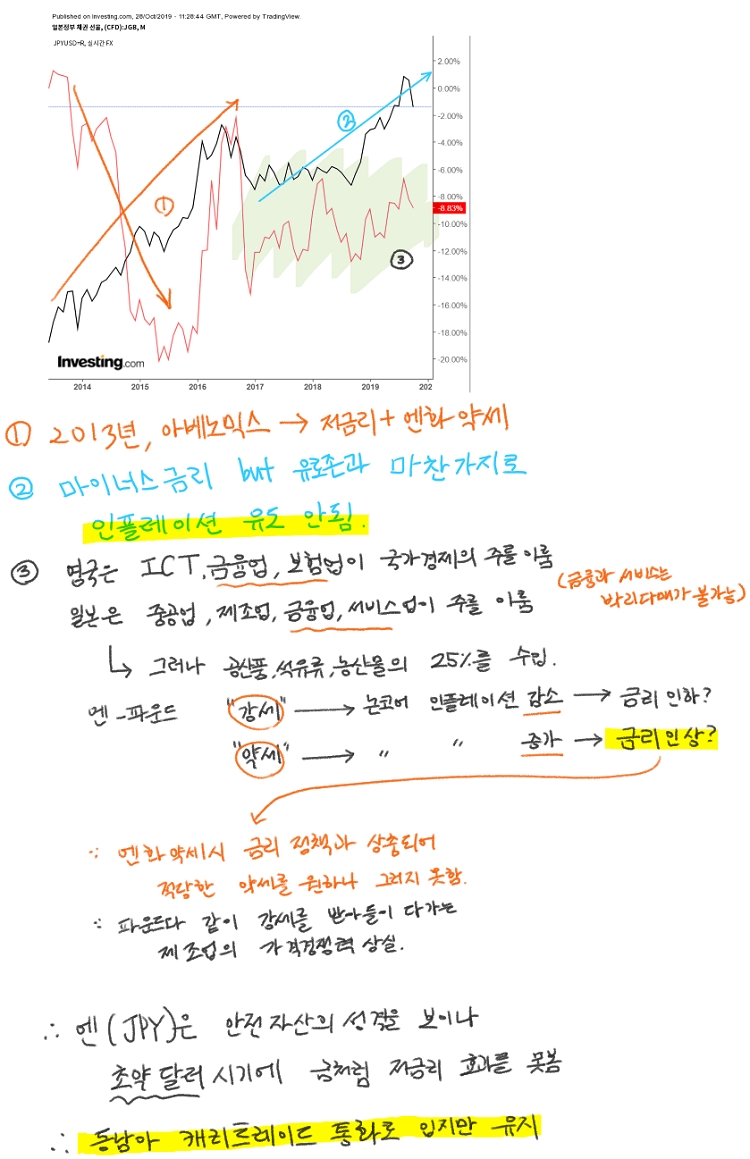 Published on Investing.com, 28/Oct/2019 - 11:28:44 GMT, Powered by TradingView.
일본정부 채권 선물, (CFD):JGB, M
JPYUSD=R, 실시간 FX
2.00%
0.00%
-2.00%
-4.00%
-6.00%
-8.00%
-8.83%
-10.00%
-12.00%
-14.00%
-16.00%
-18.00%
-20.00%
①
②
③
Investing.com
2014 2015 2016 2017 2018 2019 202
① 2013년, 아베노믹스 → 저금리 + 엔화 약세
② 마이너스 금리 but 유로존과 마찬가지로
인플레이션 유도 안됨.
③ 영국은 ICT, 금융업, 보험업이 국가경제의 주를 이룸
일본은 중공업, 제조업, 금융업, 서비스업이 주를 이룸
(금융과 서비스는
박리다매가 불가능)
↳ 그러나 공산품, 석유류, 농산물의 25%를 수입.
엔-파운드 "강세" → 논코어 인플레이션 감소 → 금리 인하?
"약세" → 〃 〃 증가 → 금리인상?
∵ 엔화 약세시 금리 정책과 상충되어
적당한 약세를 원하나 그러지 못함.
∵ 파운드다 같이 강세를 받아들이다가는
제조업의 가격경쟁력 상실.
∴ 엔(JPY)은 안전자산의 성격을 보이나
초약 달러 시기에 금처럼 저금리 효과를 못봄
∴ 동남아 캐리트레이드 통화로 입지만 유지